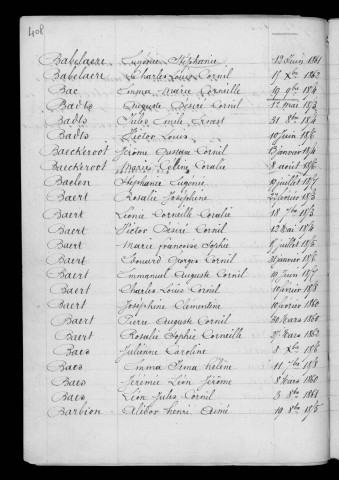 408
Babelaere Eugénie Stéphanie 13 Juin 1861
Babelaere Charles Louis Cornil 15 Xbre 1862
Bac Emma Marie Corneille 19 9bre 1874
Badts Auguste Désiré Cornil 12 mai 1873
Badts Jules Emile Ernest 31 8bre 1874
Badts Victor Louis 10 Juin 1876
Baeckeroot Jérôme Gustave Cornil Janvier 1874
Baeckeroot Marie Céline Coralie 8 août 1876
Baelen Stéphanie Eugénie 10 juillet 1877
Baert Rosalie Joséphine 22 février 1873
Baert Léonie Corneille Coralie 18 7bre 1873
Baert Victor Désiré Cornil 12 Mai 1874
Baert Marie Françoise Sophie 6 juillet 1875
Baert Edouard Georges Cornil 31 janvier 1876
Baert Emmanuel Auguste Cornil 10 Juin 1877
Baert Charles Louis Cornil 10 février 1878
Baert Joséphine Clémentine 10 février 1860
Baert Pierre Auguste Cornil 30 Mars 1860
Baert Rosalie Sophie Corneille 27 Mars 1862
Baes Julienne Caroline 8 Xbre 1876
Baes Emma Irma hélène 11 7bre 1878
Baes Jérémie Léon Jérôme 8 Mars 1860
Baes Léon Jules Cornil 3 8bre 1861
Barbion Alidor henri Aimé 19 8bre 1875